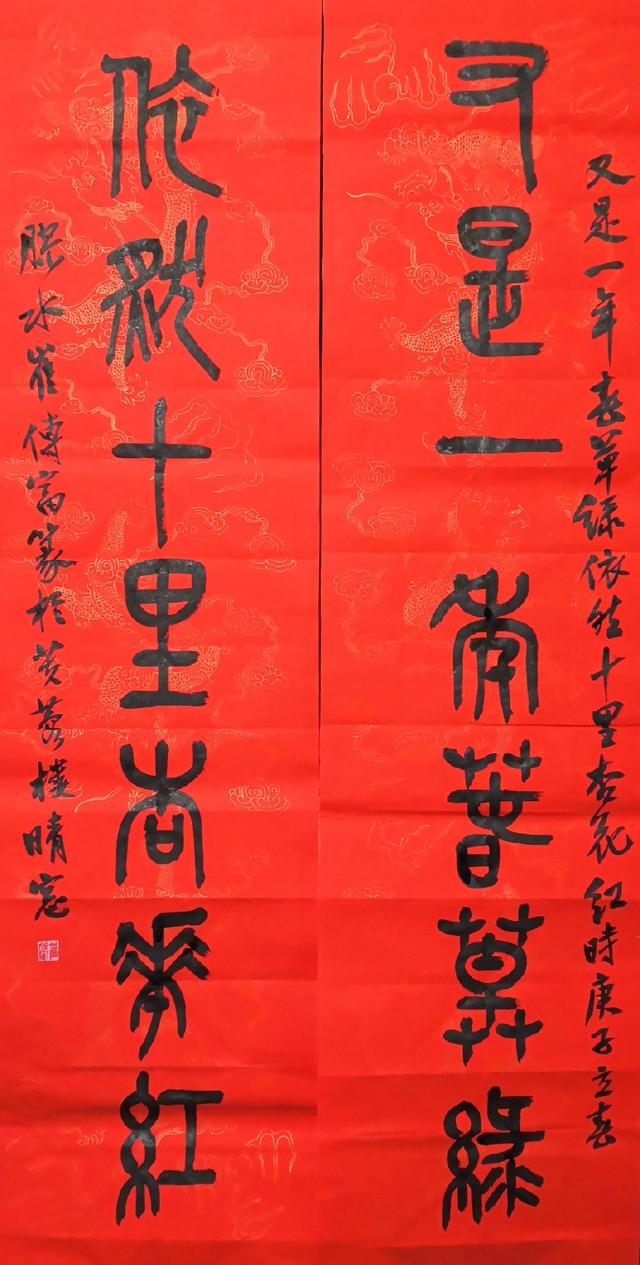 又是一年春草绿依然十里杏花红時庚子立春
又是一年春草綠
依然十里杏花紅
膠水崔傳富篆於芙蓉樓晴窓